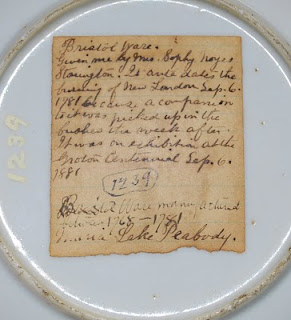 Bristol Ware.
Given me by Mrs. Sophy Noyes
Stonington. It ante dates the
burning of New London Sep. 6.
1781 because a companion
to it was picked up in the
bushes the week after.
It was on exhibition at the
Groton Centennial Sep. 6.
1881
1239
Bristol Ware manufactured
between 1768-1781
Lake Peabody.
1239